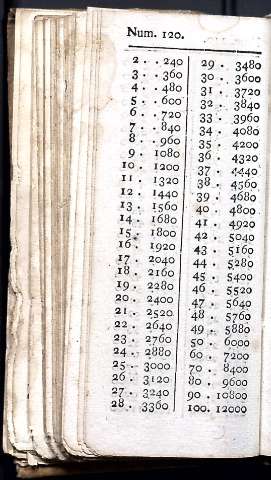 Num. 120.
2 . . 240
3 . . 360
4 . . 480
5 . . 600
6 . . 720
7 . . 840
8 . . 960
9 . 1080
10 . 1200
11 . 1320
12 . 1440
13 . 1560
14 . 1680
15 . 1800
16 . 1920
17 . 2040
18 . 2160
19 . 2280
20 . 2400
21 . 2520
22 . 2640
23 . 2760
24 . 2880
25 . 3000
26 . 3120
27 . 3240
28 . 3360
29 . 3480
30 . 3600
31 . 3720
32 . 3840
33 . 3960
34 . 4080
35 . 4200
36 . 4320
37 . 4440
38 . 4560
39 . 4680
40 . 4800
41 . 4920
42 . 5040
43 . 5160
44 . 5280
45 . 5400
46 . 5520
47 . 5640
48 . 5760
49 . 5880
50 . 6000
60 . 7200
70 . 8400
80 . 9600
90 . 10800
100. 12000